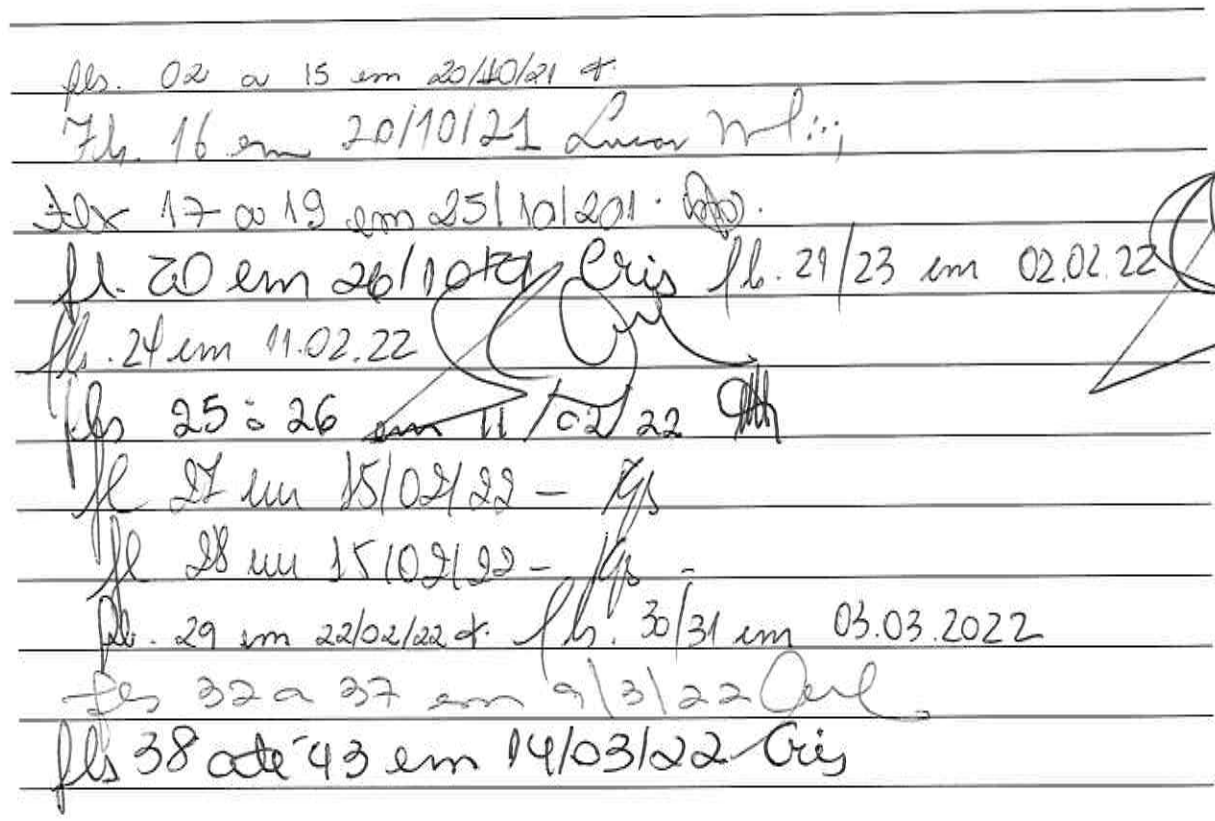 fls. 02 a 15 em 20/10/21
Fls. 16 em 20/10/21 Lucas
Fls 17 a 19 em 25/10/201.
fl. 20 em 26/10/21 Cris fls. 21/23 em 02.02.22
fls. 24 em 11.02.22
fls 25 à 26 em 11/02/22
fl 27 em 15/02/22 -
fl 28 em 15/02/22 -
fls. 29 em 22/02/22 fls. 30/31 em 03.03.2022
fls 32 a 37 em 9/3/22
fls 38 até 43 em 14/03/22 Cris